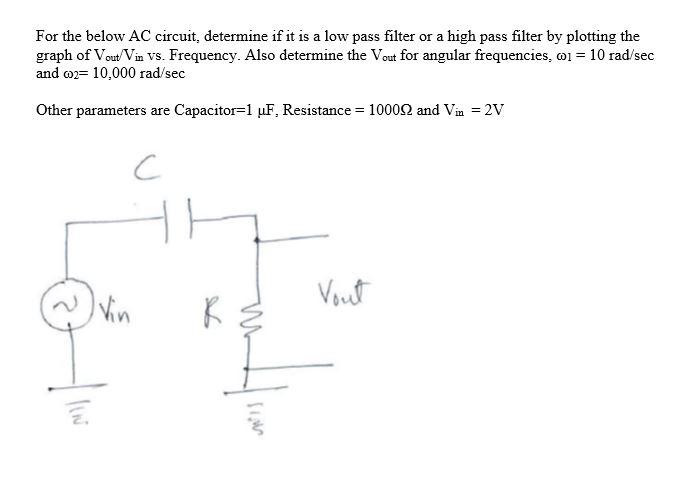 For the below AC circuit, determine if it is a low pass filter or a high pass filter by plotting the
graph of Vout/Vin vs. Frequency. Also determine the Vout for angular frequencies, ω1 = 10 rad/sec
and ω2= 10,000 rad/sec
Other parameters are Capacitor=1 μF, Resistance = 1000Ω and Vin = 2V
C
Vin
R
Vout